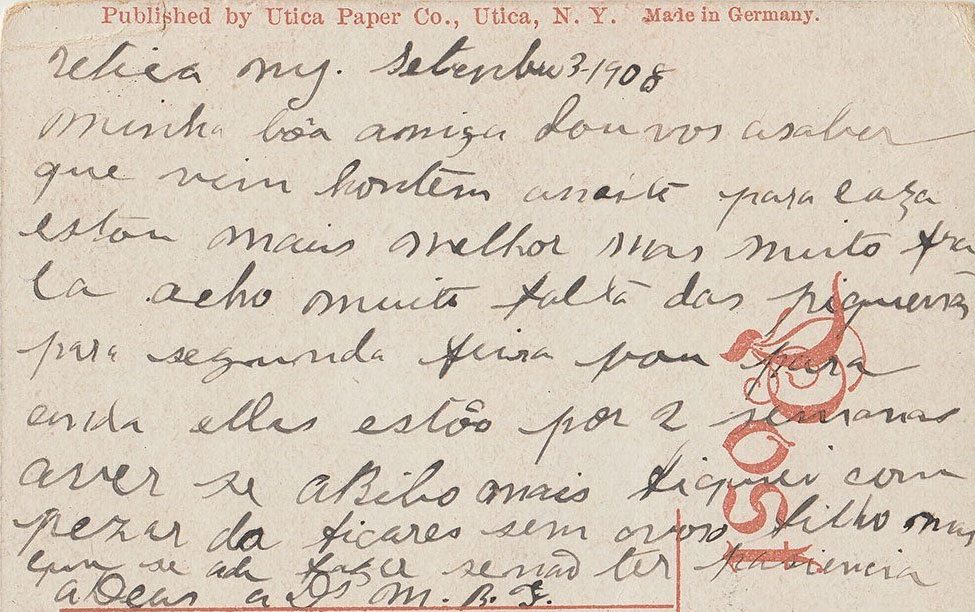 Published by Utica Paper Co., Utica, N. Y. Made in Germany.
Utica ny. Setenbu 3-1908
minha bôa amiga dou vos asaber
que vim hontem anoite para caza
estou mais melhor mas muito fra
ca acho muita falta das piquenas
para segunda feira vou para
onda ellas estôo por 2 semanas
aver se aBibo mais fiquei com
pezar da ficares sem ovoso filho mas
que se ade fazer senaõ ter pasiencia
aDeus a Ds M. B. F.
Post